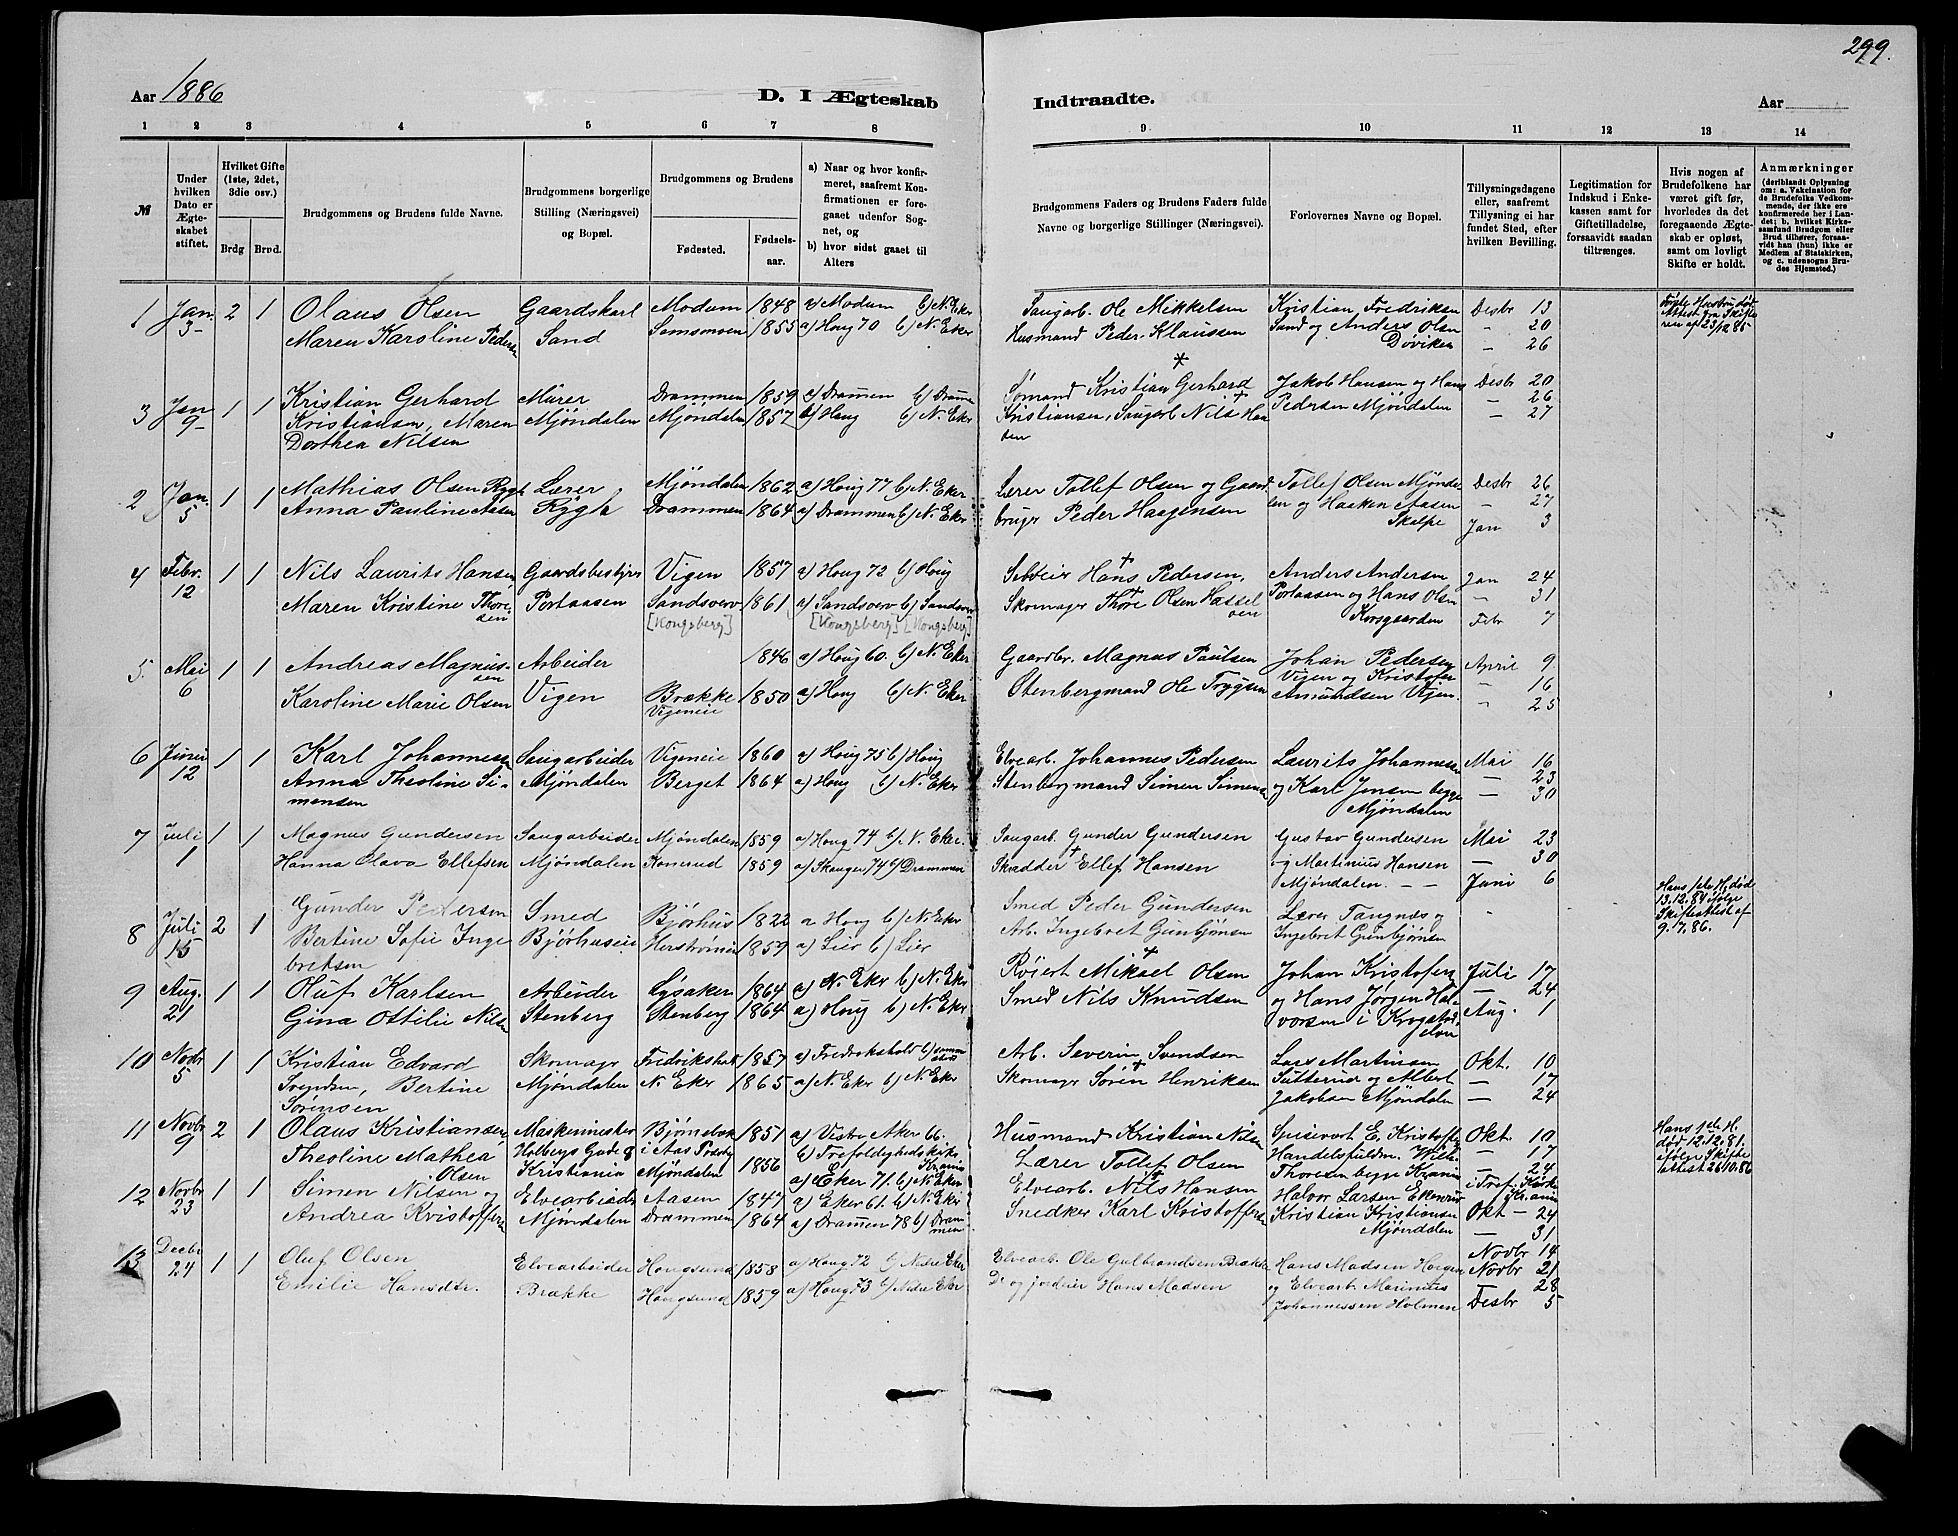 299.
Aar 1886
D. I Ægteskab
Indtraadte.
Aar
1 2 3 4 5 6 7 8 9 10 11 12 13 14
№
Under hvilken Dato er Ægteskabet stiftet.
Hvilket Gifte (1ste, 2det, 3die osv.)
Brdg Brud.
Brudgommens og Brudens fulde Navne.
Brudgommens borgerlige Stilling (Næringsvei) og Bopæl.
Brudgommens og Brudens
Fødested.
Fødselsaar.
a) Naar og hvor konfirmeret, saafremt Konfirmationen er foregaaet udenfor Sognet, og
b) hvor sidst gaaet til Alters
Brudgommens Faders og Brudens Faders fulde Navne og borgerlige Stillinger (Næringsvei).
Forlovernes Navne og Bopæl.
Tillysningsdagene eller, saafremt Tillysning ei har fundet Sted, efter hvilken Bevilling.
Legitimation for Indskud i Enkekassen samt for Giftetilladelse, forsaavidt saadan tiltrænges.
Hvis nogen af Brudefolkene har været gift før, hvorledes da det foregaaende Ægteskab er opløst, samt om lovligt Skifte er holdt.
Anmærkninger
(deriblandt Oplysning om: a. Vakcination for de Brudefolks Vedkommende, der ikke ere konfirmerede her i Landet; b. hvilket Kirkesamfund Brudgom eller Brud tilhører, forsaavidt han (hun) ikke er Medlem af Statskirken, og c. udensogns Brudes Hjemsted.)
1 Jan. 2 1 Olaus Olsen Gaardskarl Modum 1848 a) Modum b) N. Eker Saugarb. Ole Mikkelsen Kristian Fredriksen Desbr 13
3 Maren Karoline Pedersen Sand Somsmoen 1855 a) Houg 70 b) N. Eker Husmand Peder Klaussen Sand og Anders Olsen - 20
Døviken - 26
3 Jan 1 1 Kristian Gerhard Murer Drammen 1859 a) Drammen b) Dramn Sømand Kristian Gerhard Jakob Hansen og Hans Desbr 20
9 Kristiansen, Maren Mjøndalen Mjøndalen 1857 a) Houg b) N. Eker Kristiansen, Saugarb Nils Han Pedersen Mjøndalen - 26
Dorthea Nilsen sen - 27
2 Jan. 1 1 Mathias Olsen Rygh Lærer Mjøndalen 1862 a) Houg 77 b) N. Eker Lærer Tollef Olsen og Gaard Tollef Olsen Mjønda- Desbr 26
5 Anna Pauline Aasen Rygh Drammen 1864 a) Drammen b) N. Eker bruger Peder Haagensen len og Haaken Aasen - 27
Skelpe Jan 3
4 Febr. 1 1 Nils Laurits Hansen Gaardsbestyrer Vigen 1857 a) Houg 72 b) Houg Selveier Hans Pedersen, Anders Andersen Jan 24
12 Maren Kristine Thore Portaasen Sandsverv 1861 a) Sandsverv b) Sandsverv Skomager Thore Olsen Hassel Portaasen og Hans Olsen - 31
sen [Kongsberg] [Kongsberg] [Kongsberg] oen Korsgaarden Febr 7
5. Mai 1 1 Andreas Magnus- Arbeider 1846 a) Houg 60. b) N. Eker Gaardbr. Magnus Paulsen Johan Pedersen April 9
6 sen Vigen og Kristofer - 16
Karoline Marie Olsen Vigen Brække 1850 a) Houg b) N. Eker Stenbergmand Ole Trygsen Amundsen Vigen. - 25
Vigeneie
6 Juni 1 1 Karl Johannessen Saugarbeider Vigeneie 1860 a) Houg 75 b) Houg Elvearb. Johannes Pedersen Laurits Johannessen Mai 16
12 Anna Theoline Si- Mjøndalen Berget 1864 a) Houg b) N. Eker Stenbergmand Simen Simensen og Karl Jensen begge - 23
monsen Mjøndalen - 30
7 Juli 1 1 Magnus Gundersen Saugarbeider Mjøndalen 1859 a) Houg 74 b) N. Eker. Saugarb. Gunder Gundersen Gustav Gundersen Mai 23
1 Hanna Olava Ellefsen Mjøndalen Konerud 1859 a) Skouger 74 b) Drammen Skrædder Ellef Hansen og Martinius Hansen - 30
Mjøndalen. - - Juni 6
8 Juli 2 1 Gunder Pedersen Smed Bjørhus 1822 a Houg b) N. Eker Smed Peder Gundersen Lærer Tangnæs og - Hans 1ste H. død
15 Bertine Sofie Inge Bjørhuseie Herstrømeie 1859 a) Lier b) Lier Arb. Ingebret Gunbjønsen Ingebret Gunbjønsen 13.12.84 ifølge
bretsen Skifteattest af
9.7.86.
9 Aug. 1 1 Oluf Karlsen Arbeider Lysaker 1864 a) N. Eker b) N. Eker Mikael Olsen Johan Kristofers Juli 17
21 Gina Ottilie Nilsen Stenberg Stenberg 1864 a) Houg b) N. Eker Smed Nils Knudsen og Hans Jørgen Hal- - 24
vorsen i Krogstad Aug. 1
elven
10 Novbr 1 1 Kristian Edvard Skomager Fredrikshald 1857 a) Fredrikshald b) samme sted Arb. Severin Svendsen Lars Martinsen Okt. 10
5 Svendsen, Bertine Mjøndalen N. Eker 1865 a) N. Eker b) N. Eker Skomager Søren Henriksen Sutterud og Albert - 17
Sørensen Jakobsen Mjøndalen - 24
11 Novbr 2 1 Olaus Kristiansen Maskinmester Bjørnebek 1851 a) Vestre Aker 66. Husmand Kristian Nilsen E. Kristoffer Okt. 10 Hans 1ste H.
9 Theoline Mathea Holbergs Gade 8 i Aas b) Trefoldighedskirke Handelsfuldm. Wilh. - 17 død 12.12.81.
Olsen Kristiania Mjøndalen 1856 Krania Lærer Tollef Olsen Thoresen begge Krania - 24 ifølge Skifte
a) Eker 71. b) N. Eker i Tref. Kirke attest 26.10.86
12 Novbr 1 1 Simen Nilsen og Elvearbeider Aasen 1847 a) Eker 61. b) N. Eker Elvearb. Nils Hansen Halvor Larsen Ekenrud Kr.ania
23 Andrea Kristoffers Mjøndalen Drammen 1864 a) Drammen 78 b) Dram- Snedker Karl Kristoffersen Kristian Kristiansen Okt - 24
men Mjøndalen - 31
13 Decbr 1 1 Oluf Olsen Elvearbeider Hougsund 1858 a) Houg 72 b) Nedre Eker Elvearb. Ole Gulbrandsen Brække Hans Madsen Horgen Novbr 14
24 Emilie Hansdtr. Brække Hougsund 1859 a) Houg 73 b) Nedre Eker Do og jordeier Hans Madsen og Elvearb. Marinius Novbr 21
Johannessen Holmen 28
Desbr 5